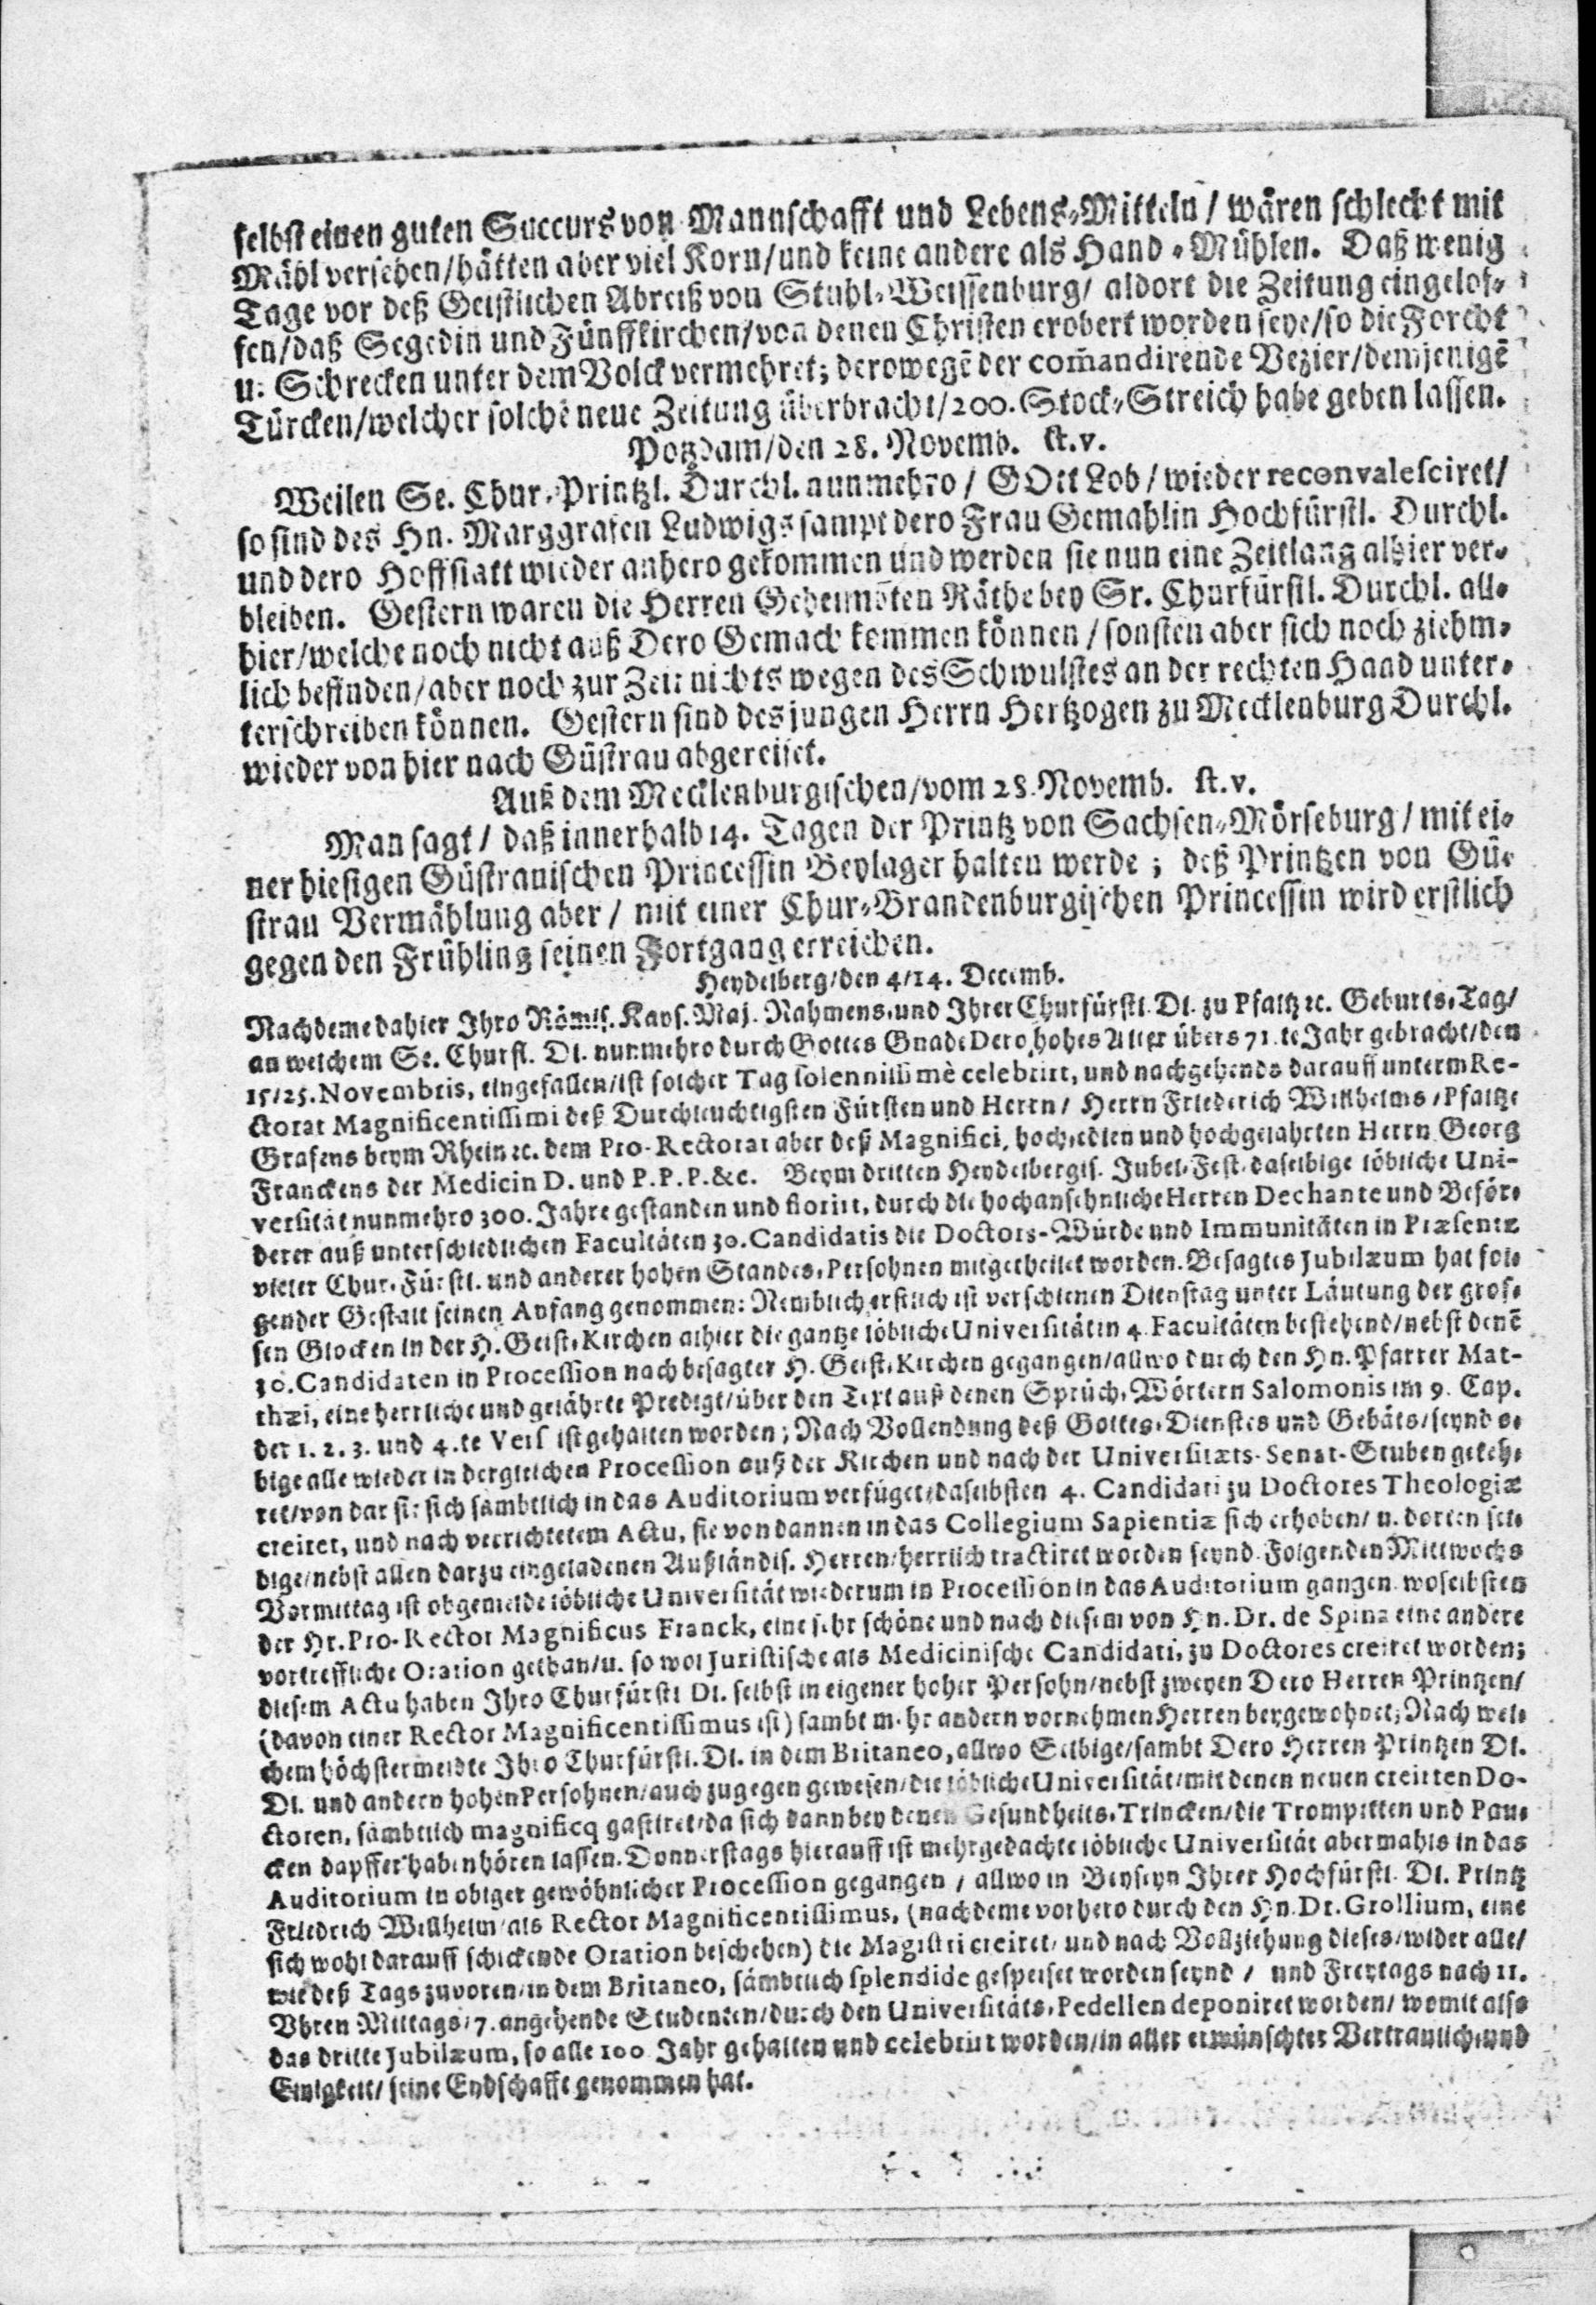 selbst einen guten Succurs von Mannschafft und Lebens-Mitteln / wären schlecht mit
Mähl versehen/hätten aber viel Korn/und keine andere als Hand-Mühlen. Daß wenig
Tage vor deß Geistlichen Abreiß von Stuhl-Weissenburg/ aldort die Zeitung eingelof-
fen/daß Segedin und Fünffkirchen/von denen Christen erobert worden seye/so die Forcht
u. Schrecken unter dem Volck vermehret; derowegē der com̄andirende Vezier/demjenigē
Türcken/welcher solche neue Zeitung überbracht/200. Stock-Streich habe geben lassen.
Potzdam/den 28. Novemb. st.v.
Weilen Se. Chur-Printzl. Durchl. nunmehro / GOtt Lob / wieder reconvalesciret/
so sind des Hn. Marggrafen Ludwigs sampt dero Frau Gemahlin Hochfürstl. Durchl.
und dero Hoffstatt wieder anhero gekommen und werden sie nun eine Zeitlang alhier ver-
bleiben. Gestern waren die Herren Geheimbten Räthe bey Sr. Churfürstl. Durchl. all-
hier/welche noch nicht auß Dero Gemach kommen können / sonsten aber sich noch ziehm-
lich befinden/aber noch zur Zeit nichts wegen des Schwulstes an der rechten Hand unter-
terschreiben können. Gestern sind des jungen Herrn Hertzogen zu Mecklenburg Durchl.
wieder von hier nach Güstrau abgereiset.
Auß dem Mecklenburgischen/vom 28. Novemb. st.v.
Man sagt / daß innerhalb 14. Tagen der Printz von Sachsen-Mörseburg / mit ei-
ner hiesigen Güstrauischen Princessin Beylager halten werde; deß Printzen von Gü-
strau Vermählung aber / mit einer Chur-Brandenburgischen Princessin wird erstlich
gegen den Frühling seinen Fortgang erreichen.
Heydelberg/den 4/14. Decemb.
Nachdeme dahier Ihro Römis. Kays. Maj. Nahmens-und Ihrer Churfürstl. Dl. zu Pfaltz ꝛc. Geburts-Tag/
an welchem Se. Churfl. Dl. nunmehro durch Gottes Gnade Dero hohes Alter übers 71.te Jahr gebracht/den
15/25. Novembris, eingefallen/ist solcher Tag solennissimè celebrirt, und nachgehends darauff unterm Re-
ctorat Magnificentissimi deß Durchleuchtigsten Fürsten und Herrn/ Herrn Friederich Willhelms / Pfaltz-
Grafens beym Rhein ꝛc. dem Pro-Rectorat aber deß Magnifici, hochedlen und hochgelahrten Herrn Georg
Franckens der Medicin D. und P.P.P.&c. Beym dritten Heydelbergis. Jubel-Fest, daselbige löbliche Uni-
versität nunmehro 300. Jahre gestanden und florirt, durch die hochansehnliche Herren Dechante und Beför-
derer auß unterschiedlichen Facultäten 30. Candidatis die Doctors-Würde und Immunitäten in Præsentz
vieler Chur-Fürstl. und anderer hohen Standes-Persohnen mitgetheilet worden. Besagtes Jubilæum hat fol-
gender Gestalt seinen Anfang genommen: Nemblich erstlich ist verschienen Dienstag unter Läutung der gros-
sen Glocken in der H. Geist-Kirchen alhier die gantze löbliche Universität in 4. Facultäten bestehend/nebst denē
30. Candidaten in Procession nach besagter H. Geist-Kirchen gegangen/allwo durch den Hn. Pfarrer Mat-
thæi, eine herrliche und gelährte Predigt/über den Text auß denen Sprüch-Wörtern Salomonis im 9. Cap.
der 1. 2. 3. und 4.te Vers ist gehalten worden; Nach Vollendung deß Gottes-Dienstes und Gebäts/seynd sel-
bige alle wieder in dergleichen Procession auß der Kirchen und nach der Universitæts-Senat-Stuben gekeh-
ret/von dar sie sich sämbtlich in das Auditorium verfüget/daselbsten 4. Candidati zu Doctores Theologiæ
creiret, und nach verrichtetem Actu, sie von dannen in das Collegium Sapientiæ sich erhoben/ u. dorten sel-
bige/nebst allen darzu eingeladenen Außländis. Herren/herrlich tractiret worden seynd. Folgenden Mittwochs
Vormittag ist obgemelde löbliche Universität wiederum in Procession in das Auditorium gangen, woselbsten
der Hr. Pro-Rector Magnificus Franck, eine sehr schöne und nach diesem von Hn. Dr. de Spina eine andere
vortreffliche Oration gethan/u. so wol Juristische als Medicinische Candidati, zu Doctores creiret worden;
diesem Actu haben Ihro Churfürstl Dl. selbst in eigener hoher Persohn/nebst zweyen Dero Herren Printzen/
(davon einer Rector Magnificentissimus ist) sambt mehr andern vornehmen Herren beygewohnet; Nach wel-
chem höchstermeldte Ihro Churfürstl. Dl. in dem Britaneo, allwo Selbige/sambt Dero Herren Printzen Dl.
Dl. und andern hohen Persohnen/auch zugegen gewesen/die löbliche Universität/mit denen neuen creirten Do-
ctoren, sämbtlich magnificq gastiret/da sich dann bey denen Gesundheits-Trincken/die Trompeten und Pau-
cken dapffer haben hören lassen. Donnerstags hierauff ist mehrgedachte löbliche Universität abermahls in das
Auditorium in obiger gewöhnlicher Procession gegangen / allwo in Beyseyn Ihrer Hochfürstl. Dl. Printz
Friedrich Willhelm/als Rector Magnificentissimus, (nachdeme vorhero durch den Hn. Dr. Grollium, eine
sich wohl darauff schickende Oration beschehen) die Magistri creiret/ und nach Vollziehung dieses/wider alle/
wie deß Tags zuvoren/in dem Britaneo, sämbtlich splendide gespeiset worden seynd / und Freytags nach 11.
Uhren Mittags/7. angehende Studenten/durch den Universitäts-Pedellen deponiret worden/ womit also
das dritte Jubilæum, so alle 100 Jahr gehalten und celebrirt worden/in aller erwünschter Vertraulich-und
Einigkeit/ seine Endschafft genommen hat.